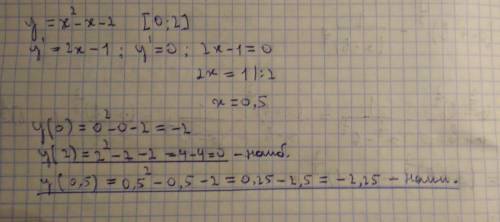 y = x² - x - 2   [0; 2]
y' = 2x - 1 ; y' = 0 ; 2x - 1 = 0
2x = 1 | : 2
x = 0,5
y(0) = 0² - 0 - 2 = -2
y(2) = 2² - 2 - 2 = 4 - 4 = 0 - наиб.
y(0,5) = 0,5² - 0,5 - 2 = 0,25 - 2,5 = -2,25 - наим.